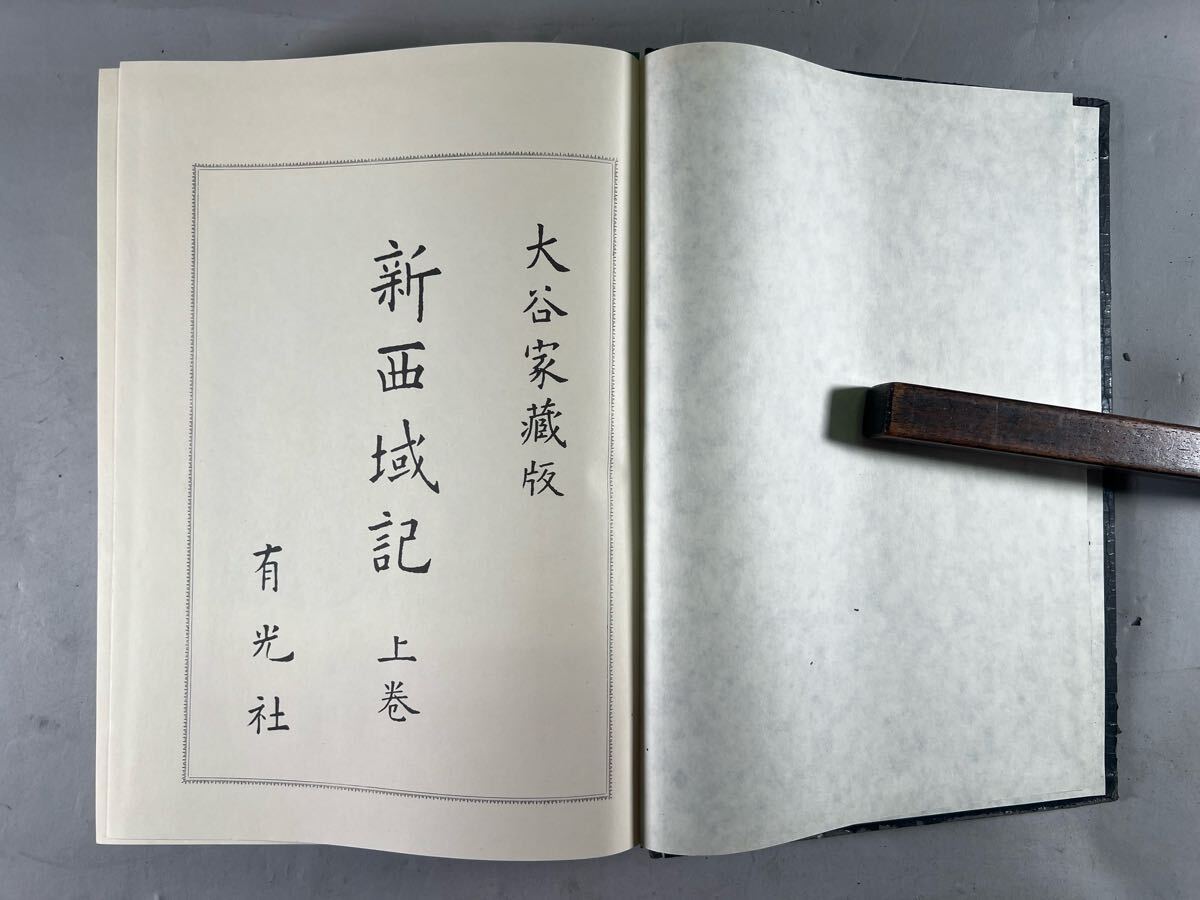 大谷家藏版
新西域記 上卷
有光社